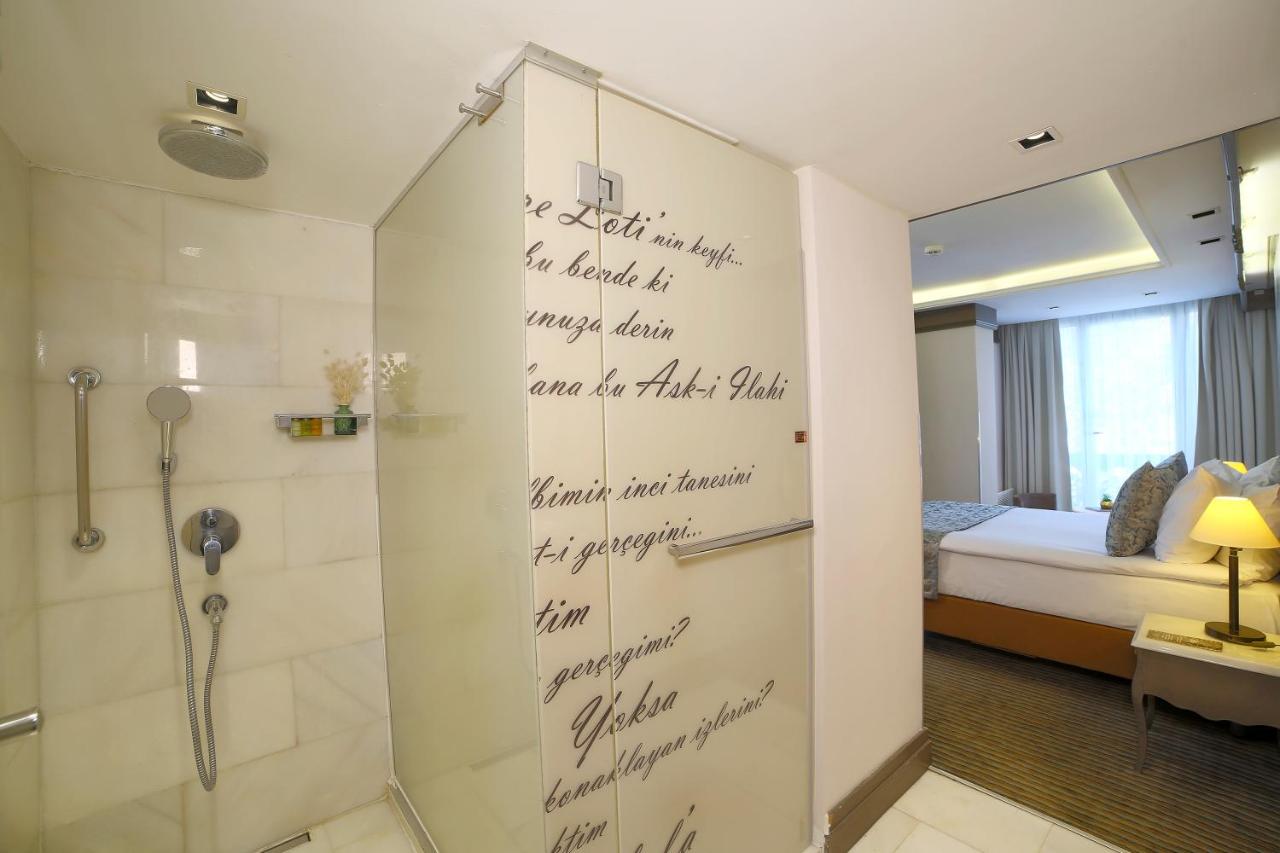 re Loti'nin keyfi...
bu bende ki
unuza derin
bana bu Ask-i Ilahi
lbimin inci tanesini
t-i gerçegini...
tim
gerçegimi?
Yoksa
konaklayan izlerini?
ktim